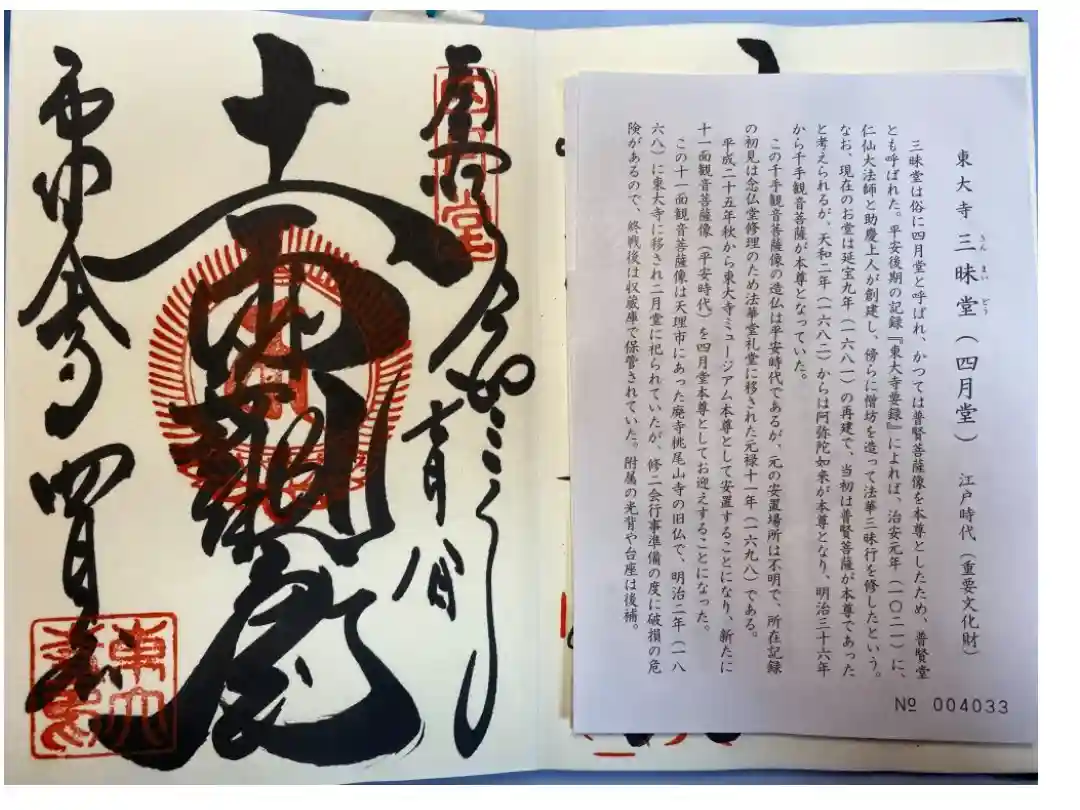 東大寺 三昧堂(四月堂) 江戸時代(重要文化財)
さんまいどう
三昧堂は俗に四月堂と呼ばれ、かつては普賢菩薩像を本尊としたため、普賢堂
とも呼ばれた。平安後期の記録『東大寺要録』によれば、治安元年(一〇二一)に、
仁仙大法師と助慶上人が創建し、傍らに僧坊を造って法華三昧行を修したという。
なお、現在のお堂は延宝九年(一六八一)の再建で、当初は普賢菩薩が本尊であった
と考えられるが、天和二年(一六八二)からは阿弥陀如来が本尊となり、明治三十六年
から千手観音菩薩が本尊となっていた。
この千手観音菩薩像の造仏は平安時代であるが、元の安置場所は不明で、所在記録
の初見は念仏堂修理のため法華堂礼堂に移された元禄十一年(一六九八)である。
平成二十五年秋から東大寺ミュージアム本尊として安置することになり、新たに
十一面観音菩薩像(平安時代)を四月堂本尊としてお迎えすることになった。
この十一面観音菩薩像は天理市にあった廃寺桃尾山寺の旧仏で、明治二年(一八
六八)に東大寺に移され二月堂に祀られていたが、修二会行事準備の度に破損の危
険があるので、終戦後は収蔵庫で保管されていた。附属の光背や台座は後補。
№ 004033
十一面
四月堂